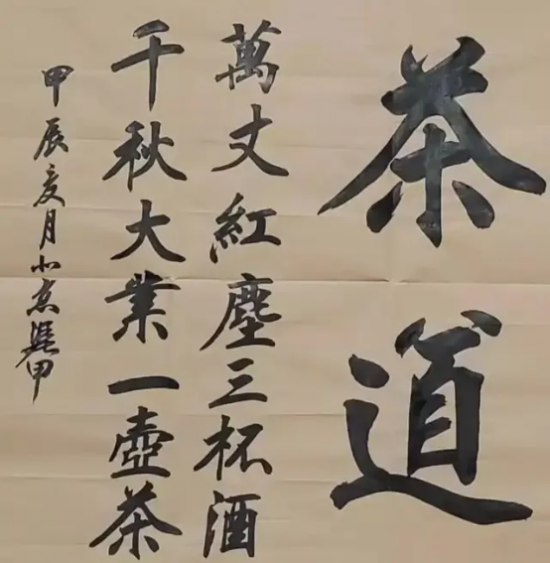 茶道
萬丈紅塵三杯酒
千秋大業一壺茶
甲辰亥月小京